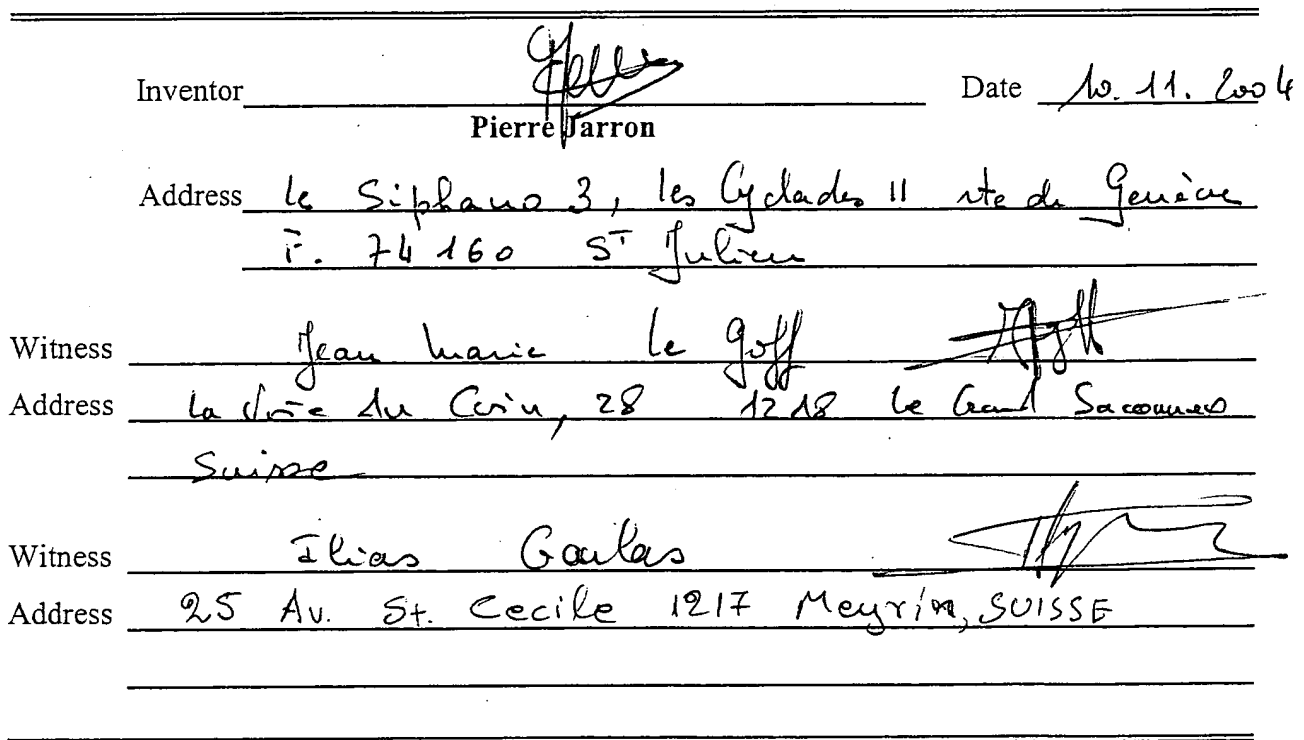 Inventor Date 10. 11. 2004
Pierre Jarron
Address Le Siphano 3, les Cyclades II rte de Genève
F. 74 160 ST Julien
Witness Jean Marie Le Goff
Address La du Coin, 28 1218 Le Grand Saconnex
Suisse
Witness Ilias Goulas
Address 25 Av. St. Cecile 1217 Meyrin, SUISSE